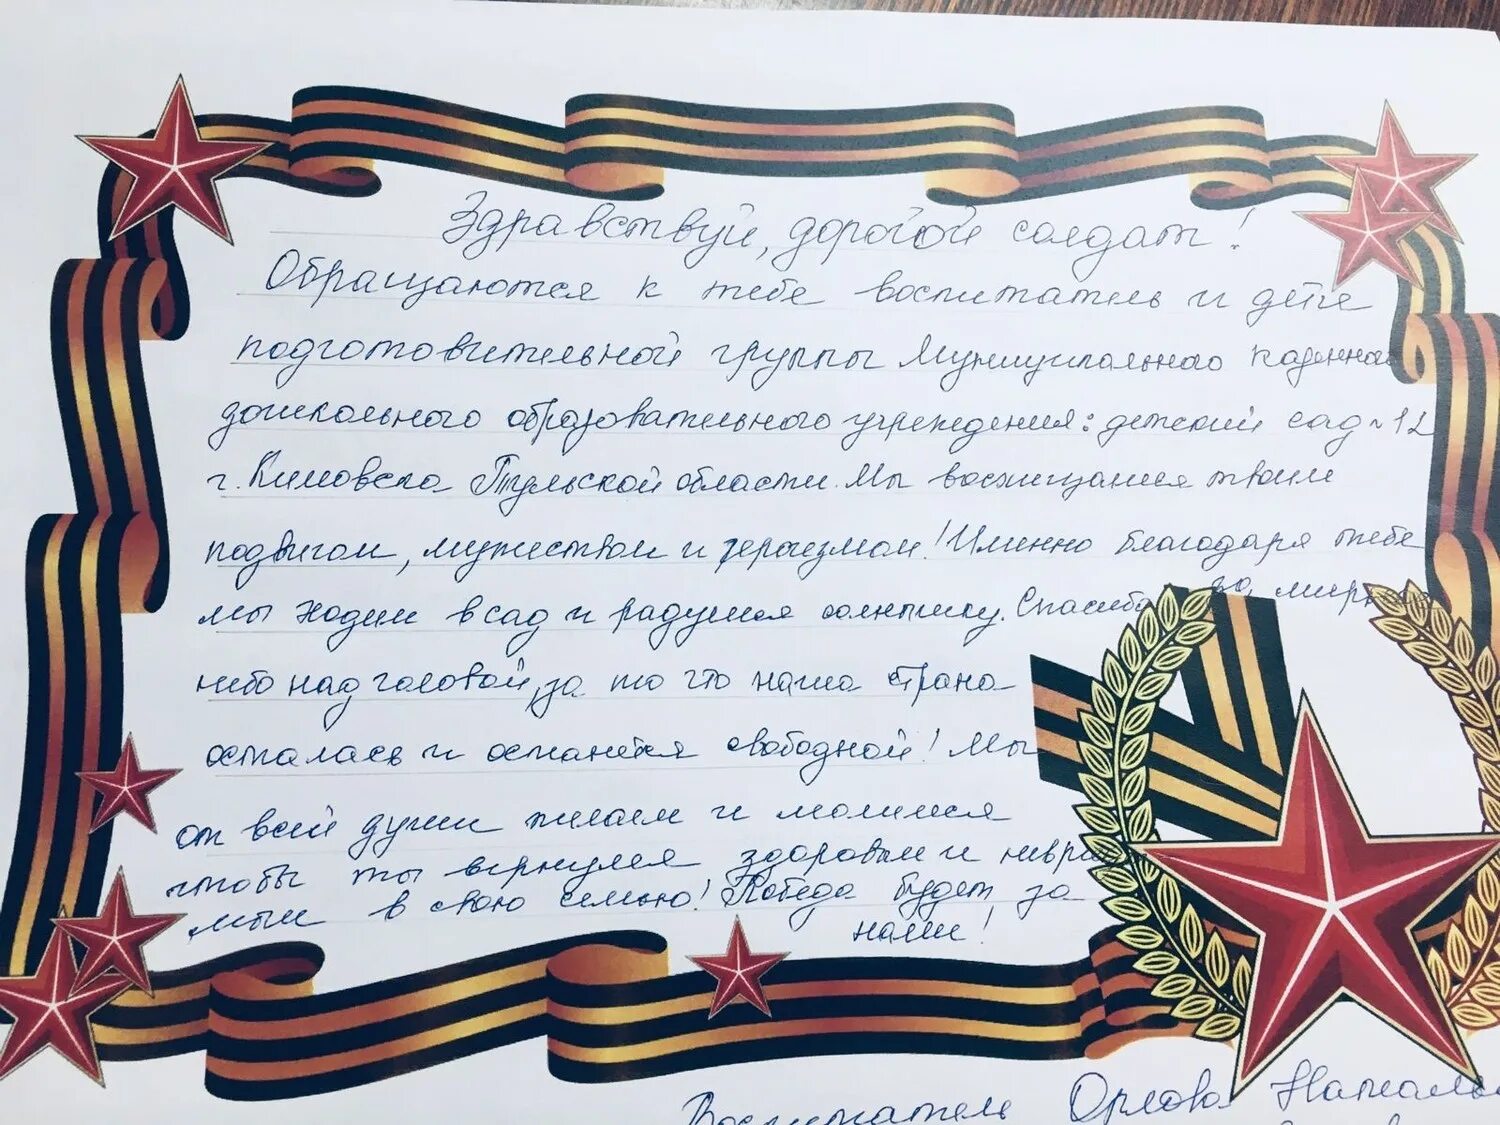 Здравствуй, дорогой солдат!
Обращаются к тебе воспитатель и дети
подготовительной группы Муниципального казенного
дошкольного образовательного учреждения: детский сад № 12
г. Кимовска Тульской области. Мы восхищаемся твоим
подвигом, мужеством и героизмом! Именно благодаря тебе
мы ходим в сад и радуемся солнышку. Спасибо за мирное
небо над головой, за то что наша страна
осталась и останется свободной! Мы
от всей души желаем и молимся
чтобы ты вернулся здоровым и невреди
мым в свою семью! Победа будет за
нами!
Воспитатель Орлова Наталья